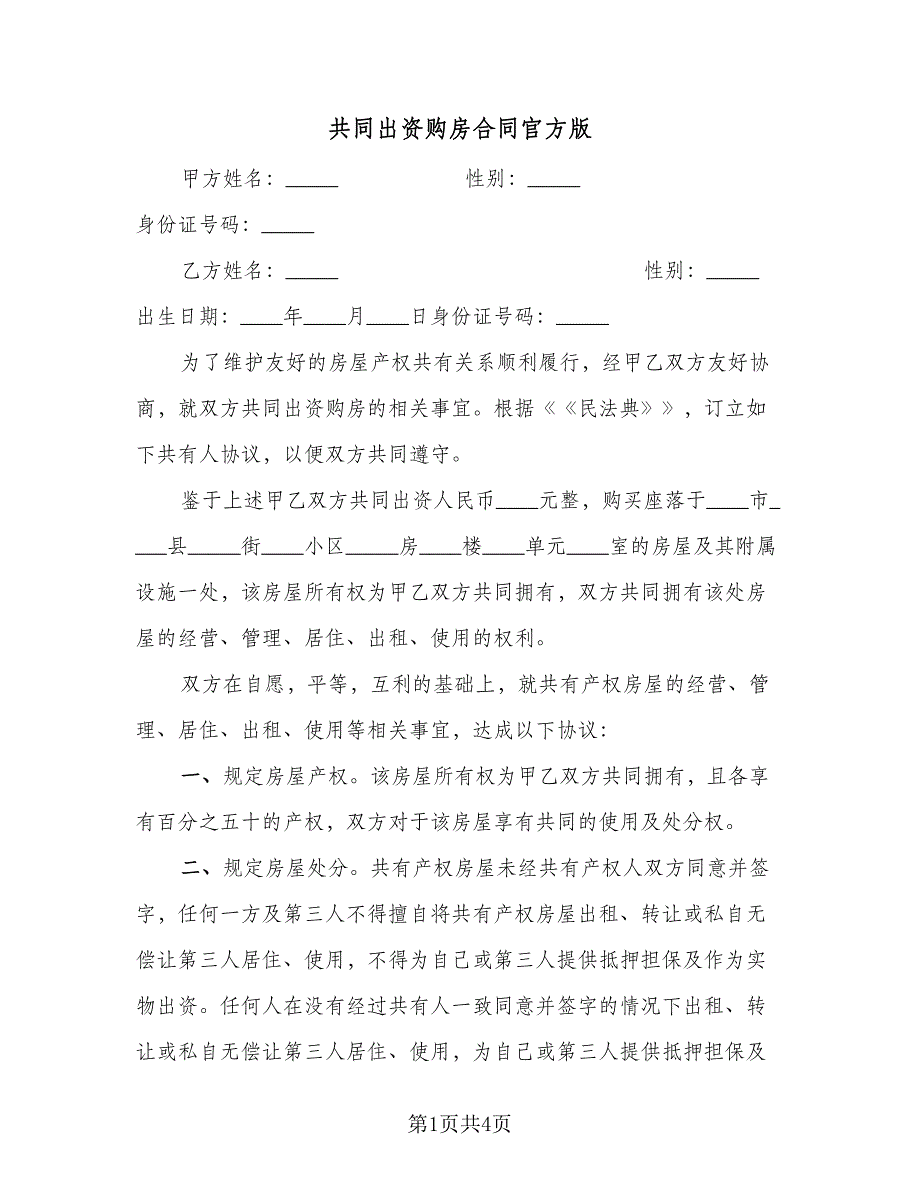 共同出资购房合同官方版
甲方姓名：_____ 性别：_____
身份证号码：_____
乙方姓名：_____ 性别：_____
出生日期：____年____月____日身份证号码：_____
为了维护友好的房屋产权共有关系顺利履行，经甲乙双方友好协
商，就双方共同出资购房的相关事宜。根据《《民法典》》，订立如
下共有人协议，以便双方共同遵守。
鉴于上述甲乙双方共同出资人民币____元整，购买座落于____市_
___县_____街____小区_____房____楼____单元____室的房屋及其附属
设施一处，该房屋所有权为甲乙双方共同拥有，双方共同拥有该处房
屋的经营、管理、居住、出租、使用的权利。
双方在自愿，平等，互利的基础上，就共有产权房屋的经营、管
理、居住、出租、使用等相关事宜，达成以下协议：
一、规定房屋产权。该房屋所有权为甲乙双方共同拥有，且各享
有百分之五十的产权，双方对于该房屋享有共同的使用及处分权。
二、规定房屋处分。共有产权房屋未经共有产权人双方同意并签
字，任何一方及第三人不得擅自将共有产权房屋出租、转让或私自无
偿让第三人居住、使用，不得为自己或第三人提供抵押担保及作为实
物出资。任何人在没有经过共有人一致同意并签字的情况下出租、转
让或私自无偿让第三人居住、使用，为自己或第三人提供抵押担保及
第1页共4页